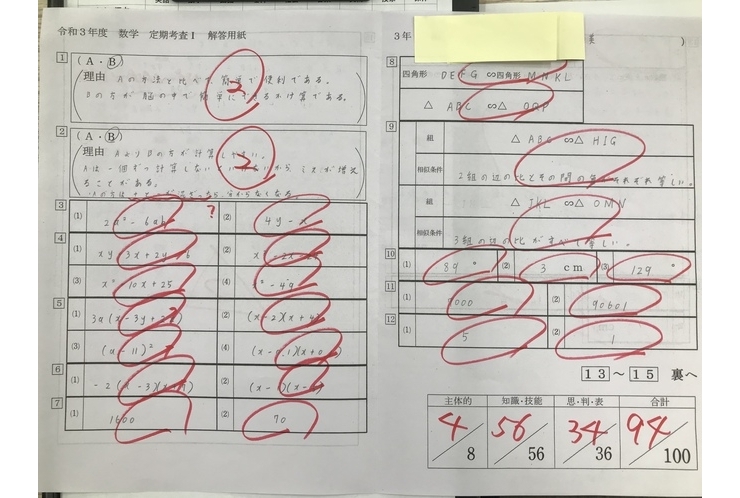 令和3年度 数学 定期考査Ⅰ 解答用紙
1
(A・B)
理由
Aの方法と比べて、簡単で便利である。
Bの方が頭の中で簡単にできるかけ算である。
3
2
(A・B)
理由
AよりBの方が計算しやすい。
Aは一個ずつ計算しないといけないから ミスが増え
ることがある。
3
(1) 2a² - 6ab
?
(2) 4y - x
4
(1) xy 3x + 2y 6
(2) x
(3) x² 10x + 25
(4) x² - 49
5
(1) 3a(x - 3y + 2
(2) (x - 2)(x + 4)
(3) (a - 11)²
(4) (x - 0.1)(x + 0
6
(1) -2(x - 3)(x
(2) (x -
7
(1) 1600
(2) 70
3年
)
8
四角形 DEFG ∽四角形 MNKL
△ ABC ∽△ OQP
9
組 △ ABC ∽△ HIG
相似条件 2組の辺の比とその間の角がそれぞれ等しい。
組 △ JKL ∽△ OMN
相似条件 3組の辺の比がすべて等しい。
10
(1) 84°
(2) 3 cm
(3) 129°
11
(1) 8000
(2) 90601
12
(1) 5
(2) 1
13 ～ 15 裏へ
主体的 知識・技能 思・判・表 合計
4/8 56/56 34/36 94/100